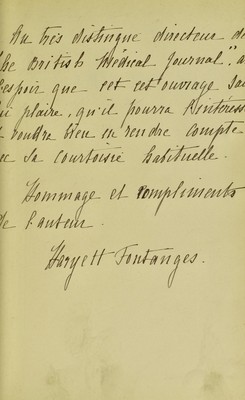 Au très distingué directeur d
he British Médical Journal", a
'espoir que cet cet ouvrage sau
ui plaire, qu'il pourra l'intéress
t voudra bien en rendre compte
ec sa courtoisie habituelle.
Hommage et compliments
de l'auteur.
Haryett Fontanges.